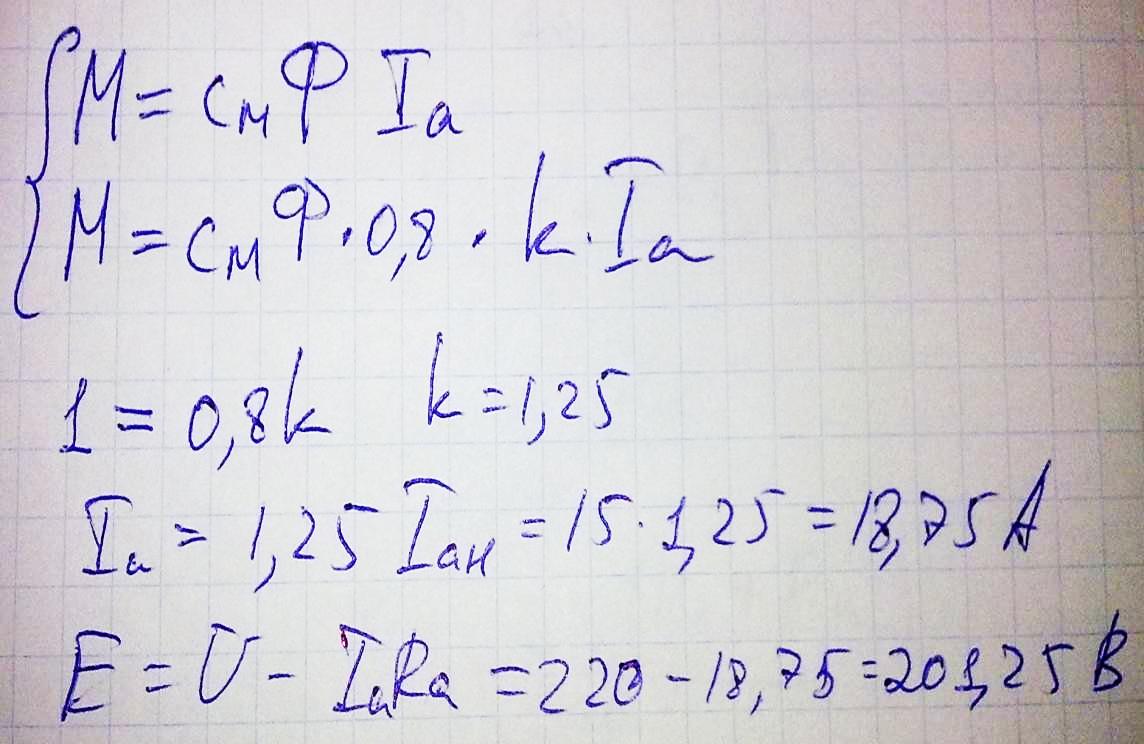 M = cмФ Iа
M = cмФ · 0,8 · k · Iа
1 = 0,8k k = 1,25
Iа = 1,25 Iан = 15 · 1,25 = 18,75 А
E = U - IаRа = 220 - 18,75 = 201,25 В